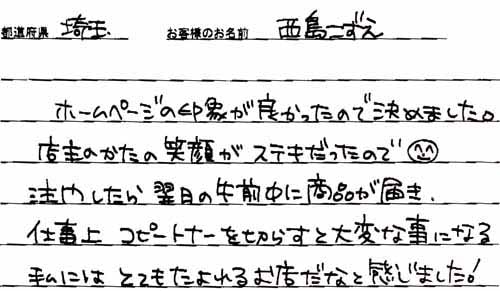 都道府県 埼玉 お客様のお名前 西島こずえ
ホームページの印象が良かったので決めました。
店主のかたの笑顔がステキだったので
注文したら翌日の午前中に商品が届き、
仕事上コピートナーを切らすと大変な事になる
私にはとてもたよれるお店だなと感じました!